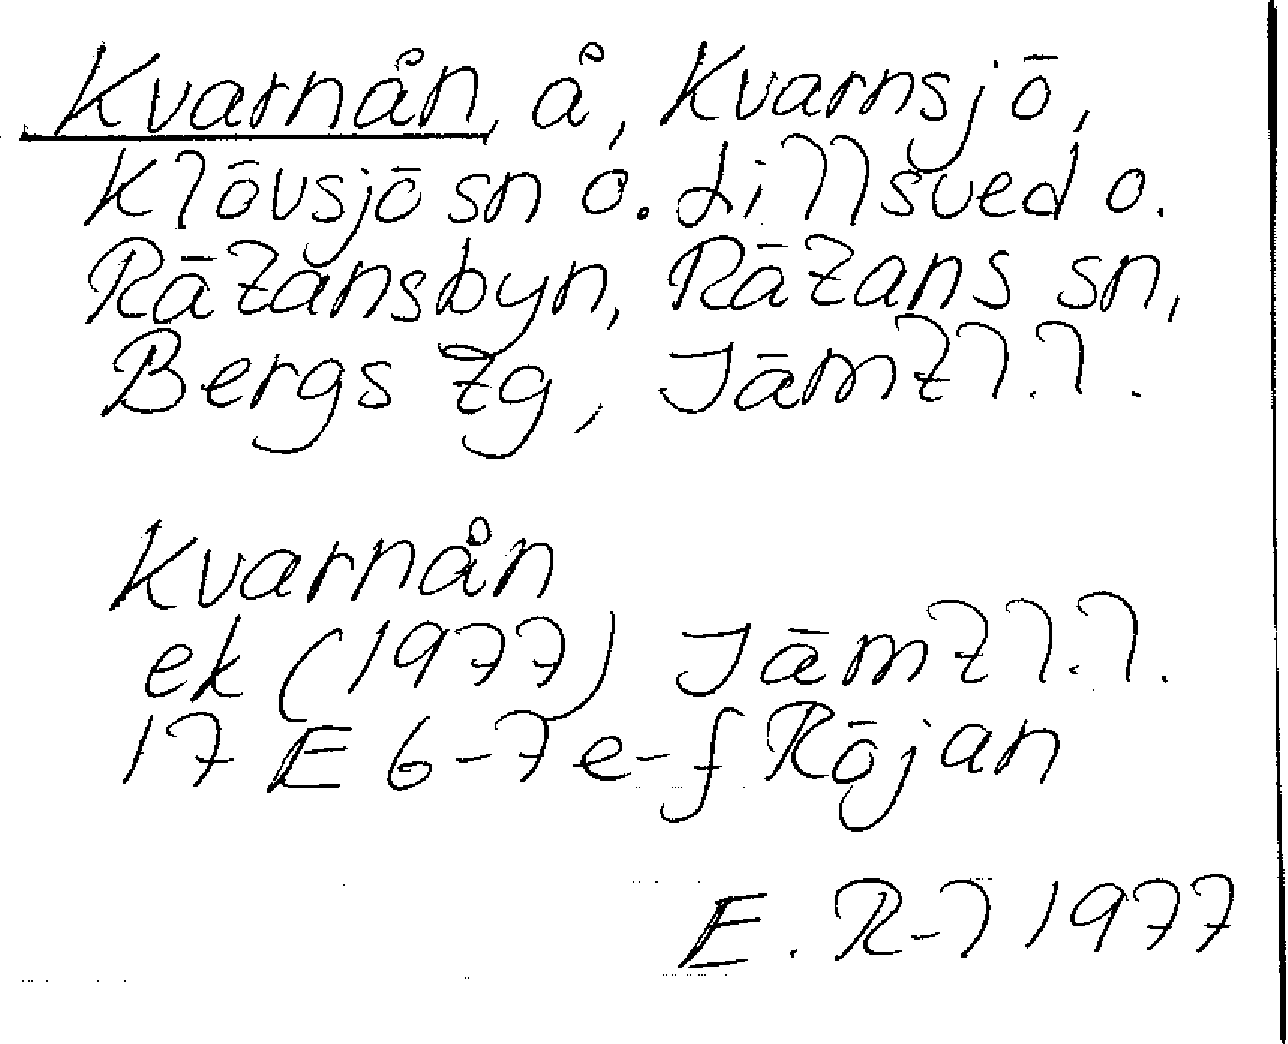 Kvarnån, å, Kvarnsjö,
Klövsjö sn o. Lillsved o.
Rätansbyn, Rätans sn,
Bergs tg, Jämtl.l.
Kvarnån
ek (1977) Jämtl.l.
17 E 6-7e-f Röjan
E. R-l 1977